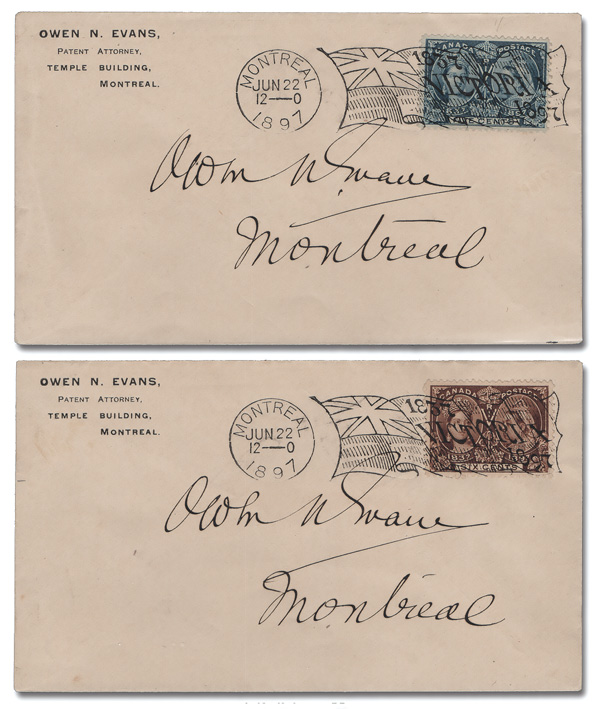 OWEN N. EVANS,
PATENT ATTORNEY,
TEMPLE BUILDING,
MONTREAL.
MONTREAL
JUN 22
12—0
1897
1837
VICTORIA
1897
CANADA POSTAGE
FIVE CENTS
Owen N. Evans
Montreal
OWEN N. EVANS,
PATENT ATTORNEY,
TEMPLE BUILDING,
MONTREAL.
MONTREAL
JUN 22
12—0
1897
1837
VICTORIA
1897
CANADA POSTAGE
1837 1897
SIX CENTS
Owen N. Evans
Montreal